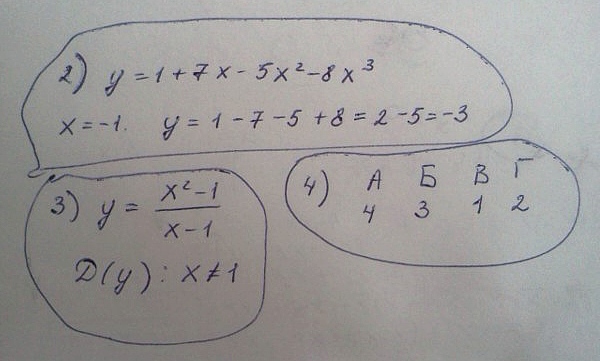 2) y = 1 + 7x - 5x² - 8x³
x = -1. y = 1 - 7 - 5 + 8 = 2 - 5 = -3
3) y = (x² - 1)/(x - 1)
D(y): x ≠ 1
4) А Б В Г
4 3 1 2